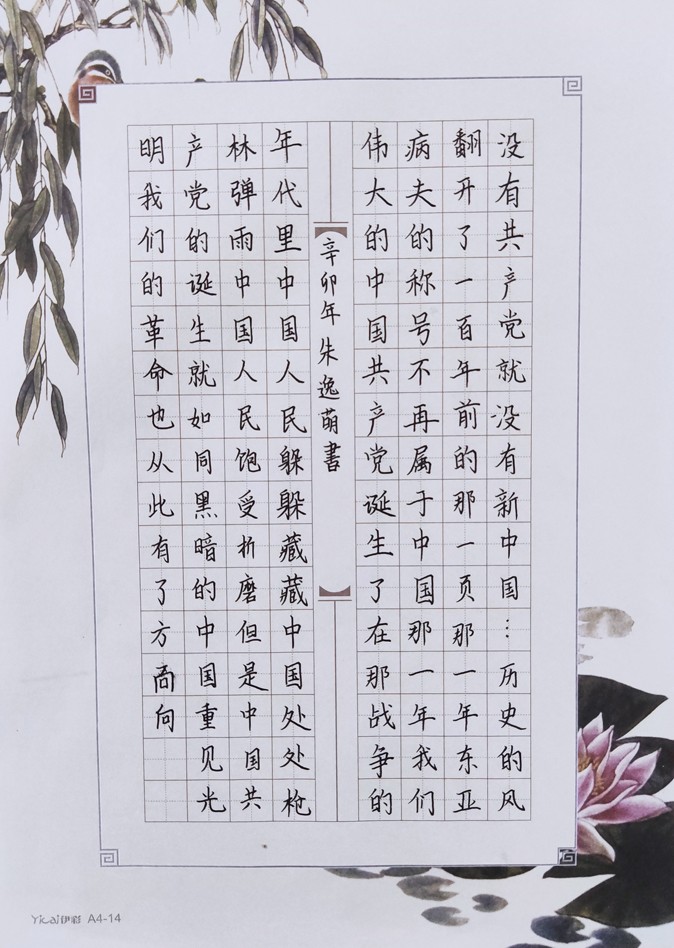 没有共产党就没有新中国…历史的风
翻开了一百年前的那一页那一年东亚
病夫的称号不再属于中国那一年我们
伟大的中国共产党诞生了在那战争的
辛卯年朱逸萌書
年代里中国人民躲躲藏藏中国处处枪
林弹雨中国人民饱受折磨但是中国共
产党的诞生就如同黑暗的中国重见光
明我们的革命也从此有了方向
Yicai伊彩 A4-14